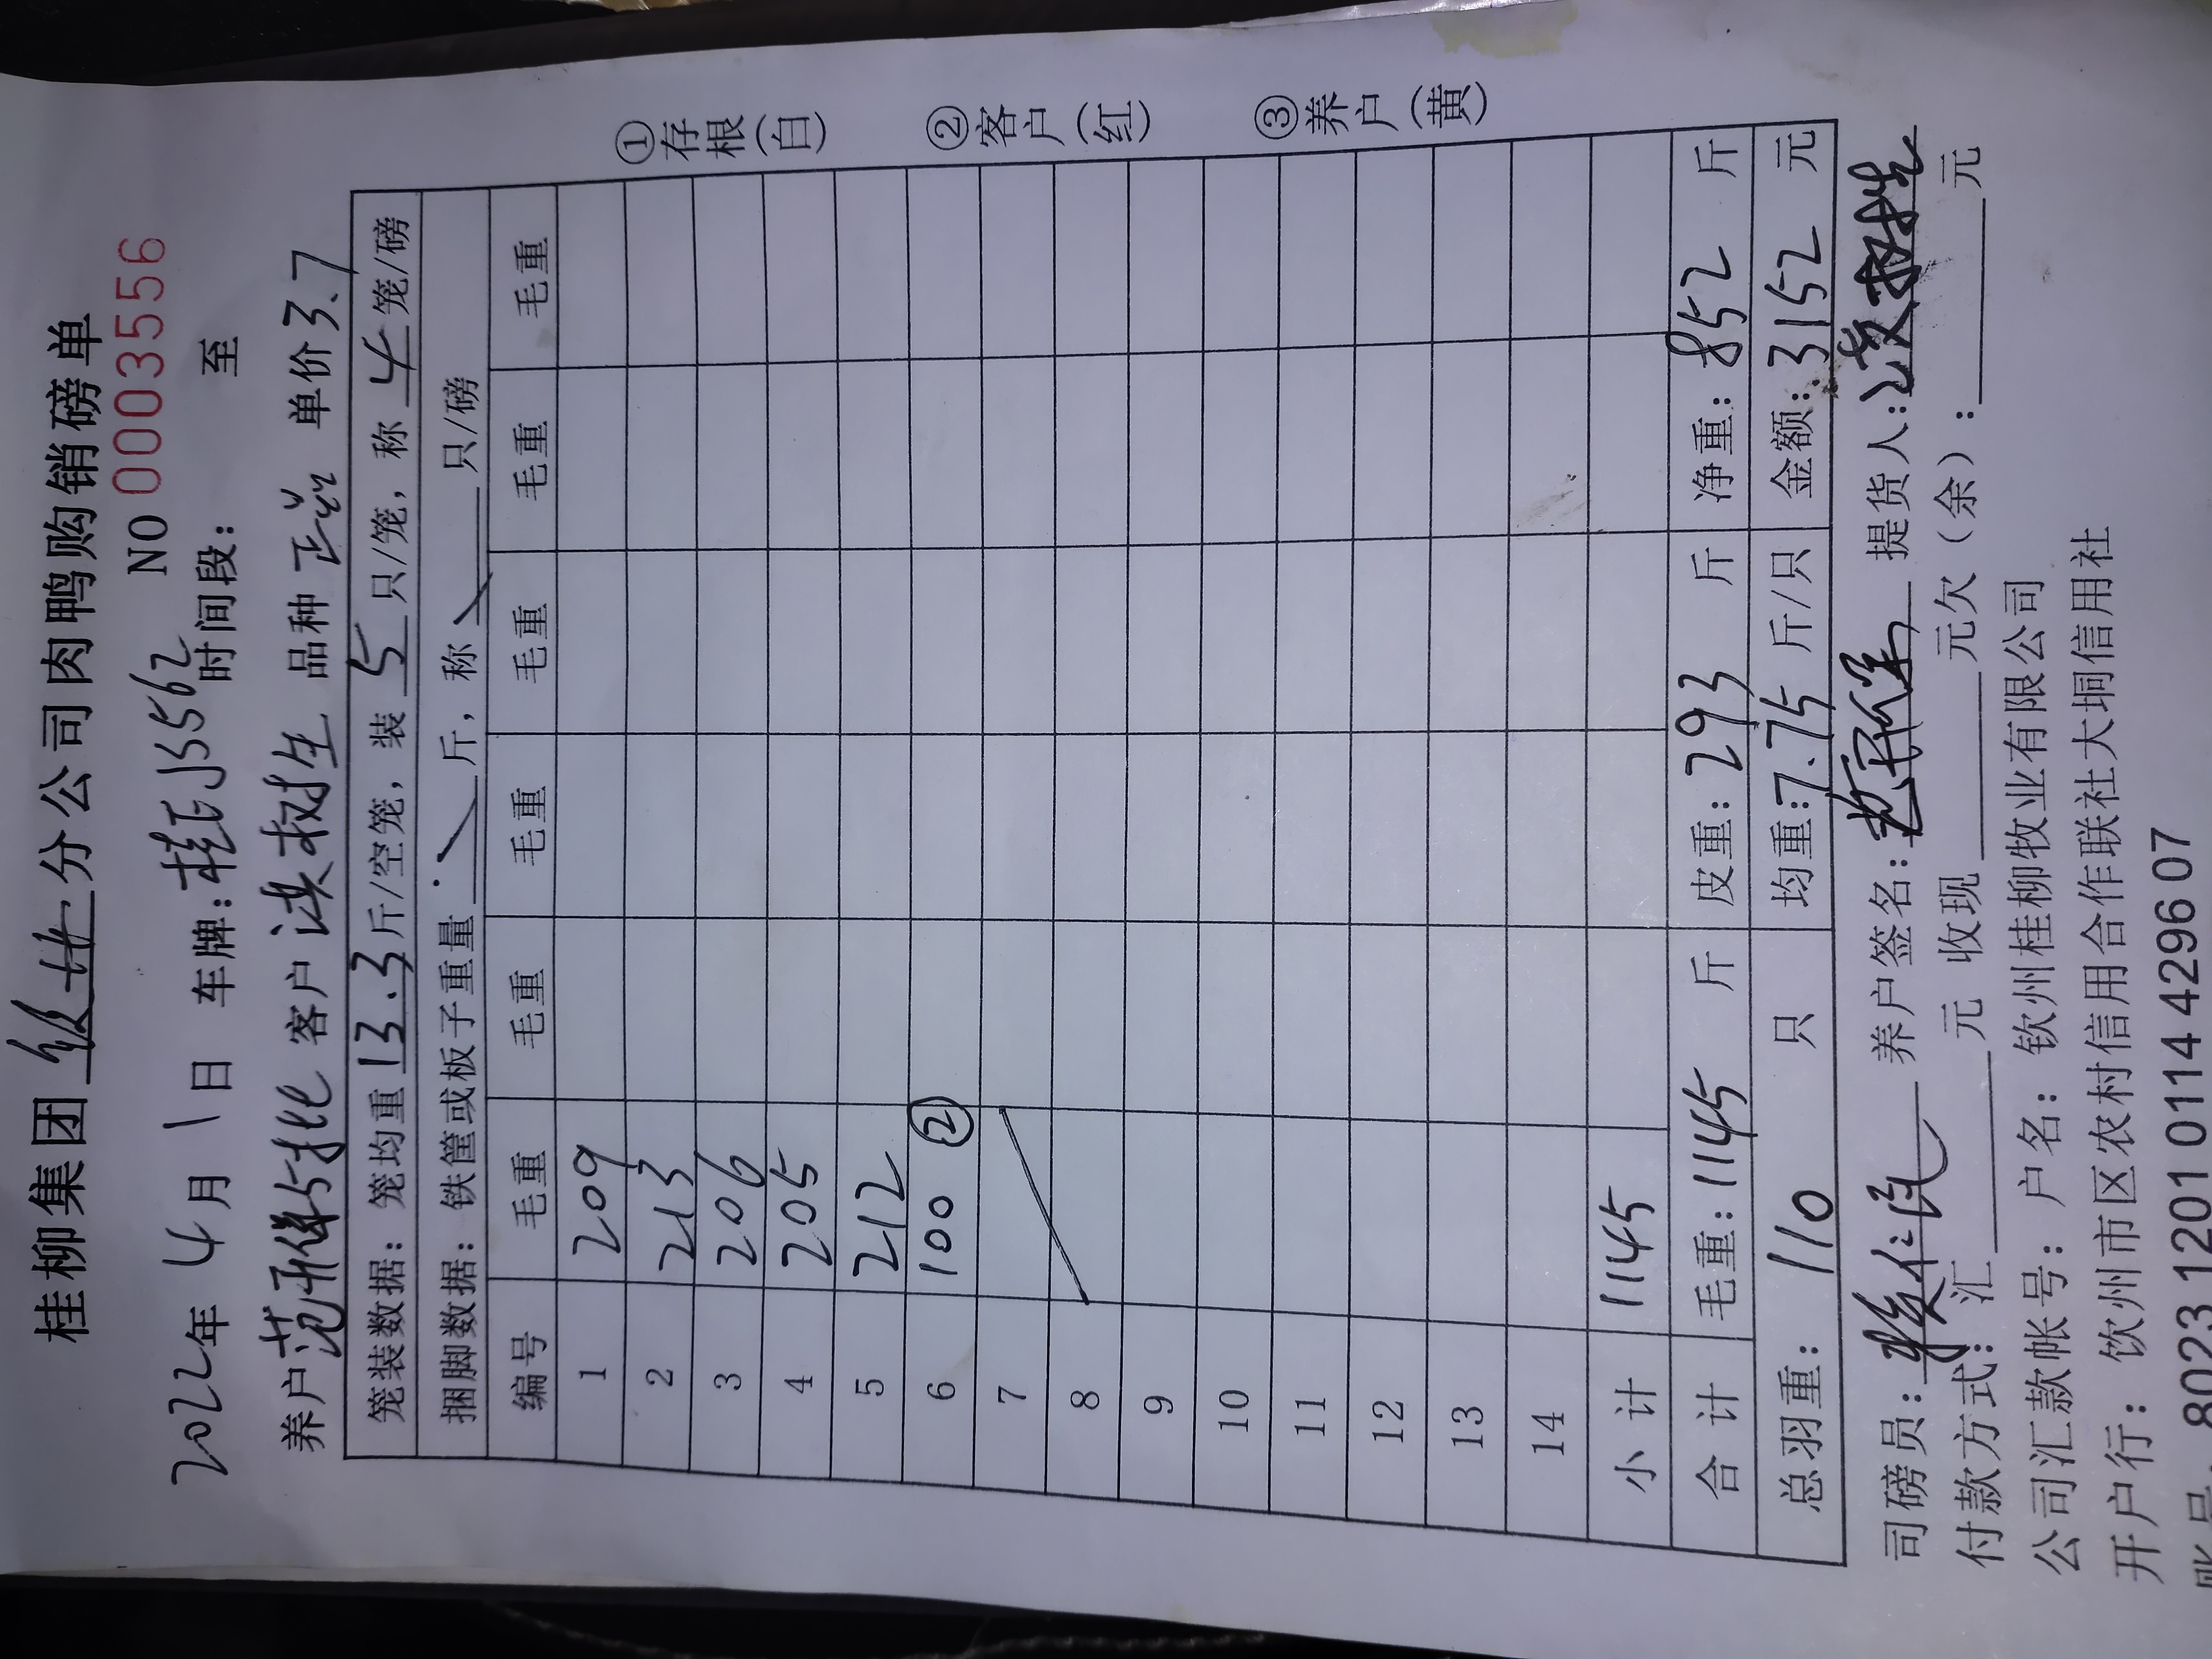 桂柳集团 分公司肉鸭购销磅单
NO 0003556
2022年 4月 1日 车牌:桂EJS562 时间段: 至
养户 客户 洪树生 品种 正品 单价 3.7
笼装数据: 笼均重 13.3 斤/空笼, 装 5 只/笼, 称 4 笼/磅
捆脚数据: 铁筐或板子重量 斤, 称 只/磅
编号 毛重 毛重 毛重 毛重 毛重 毛重
1 209
2 213
3 206
4 205
5 212
6 100 ②
7
8
9
10
11
12
13
14
小计 1145
合计 毛重: 1145 斤 皮重: 293 斤 净重: 852 斤
总羽重: 110 只 均重: 7.75 斤/只 金额: 3152 元
①存根(白) ②客户(红) ③养户(黄)
司磅员: 养户签名: 提货人: 洪树生
付款方式: 汇 元 收现 元欠(余): 元
公司汇款帐号: 户名: 钦州桂柳牧业有限公司
开户行: 钦州市区农村信用合作联社大垌信用社
账号: 8023 1201 0114 4296 07